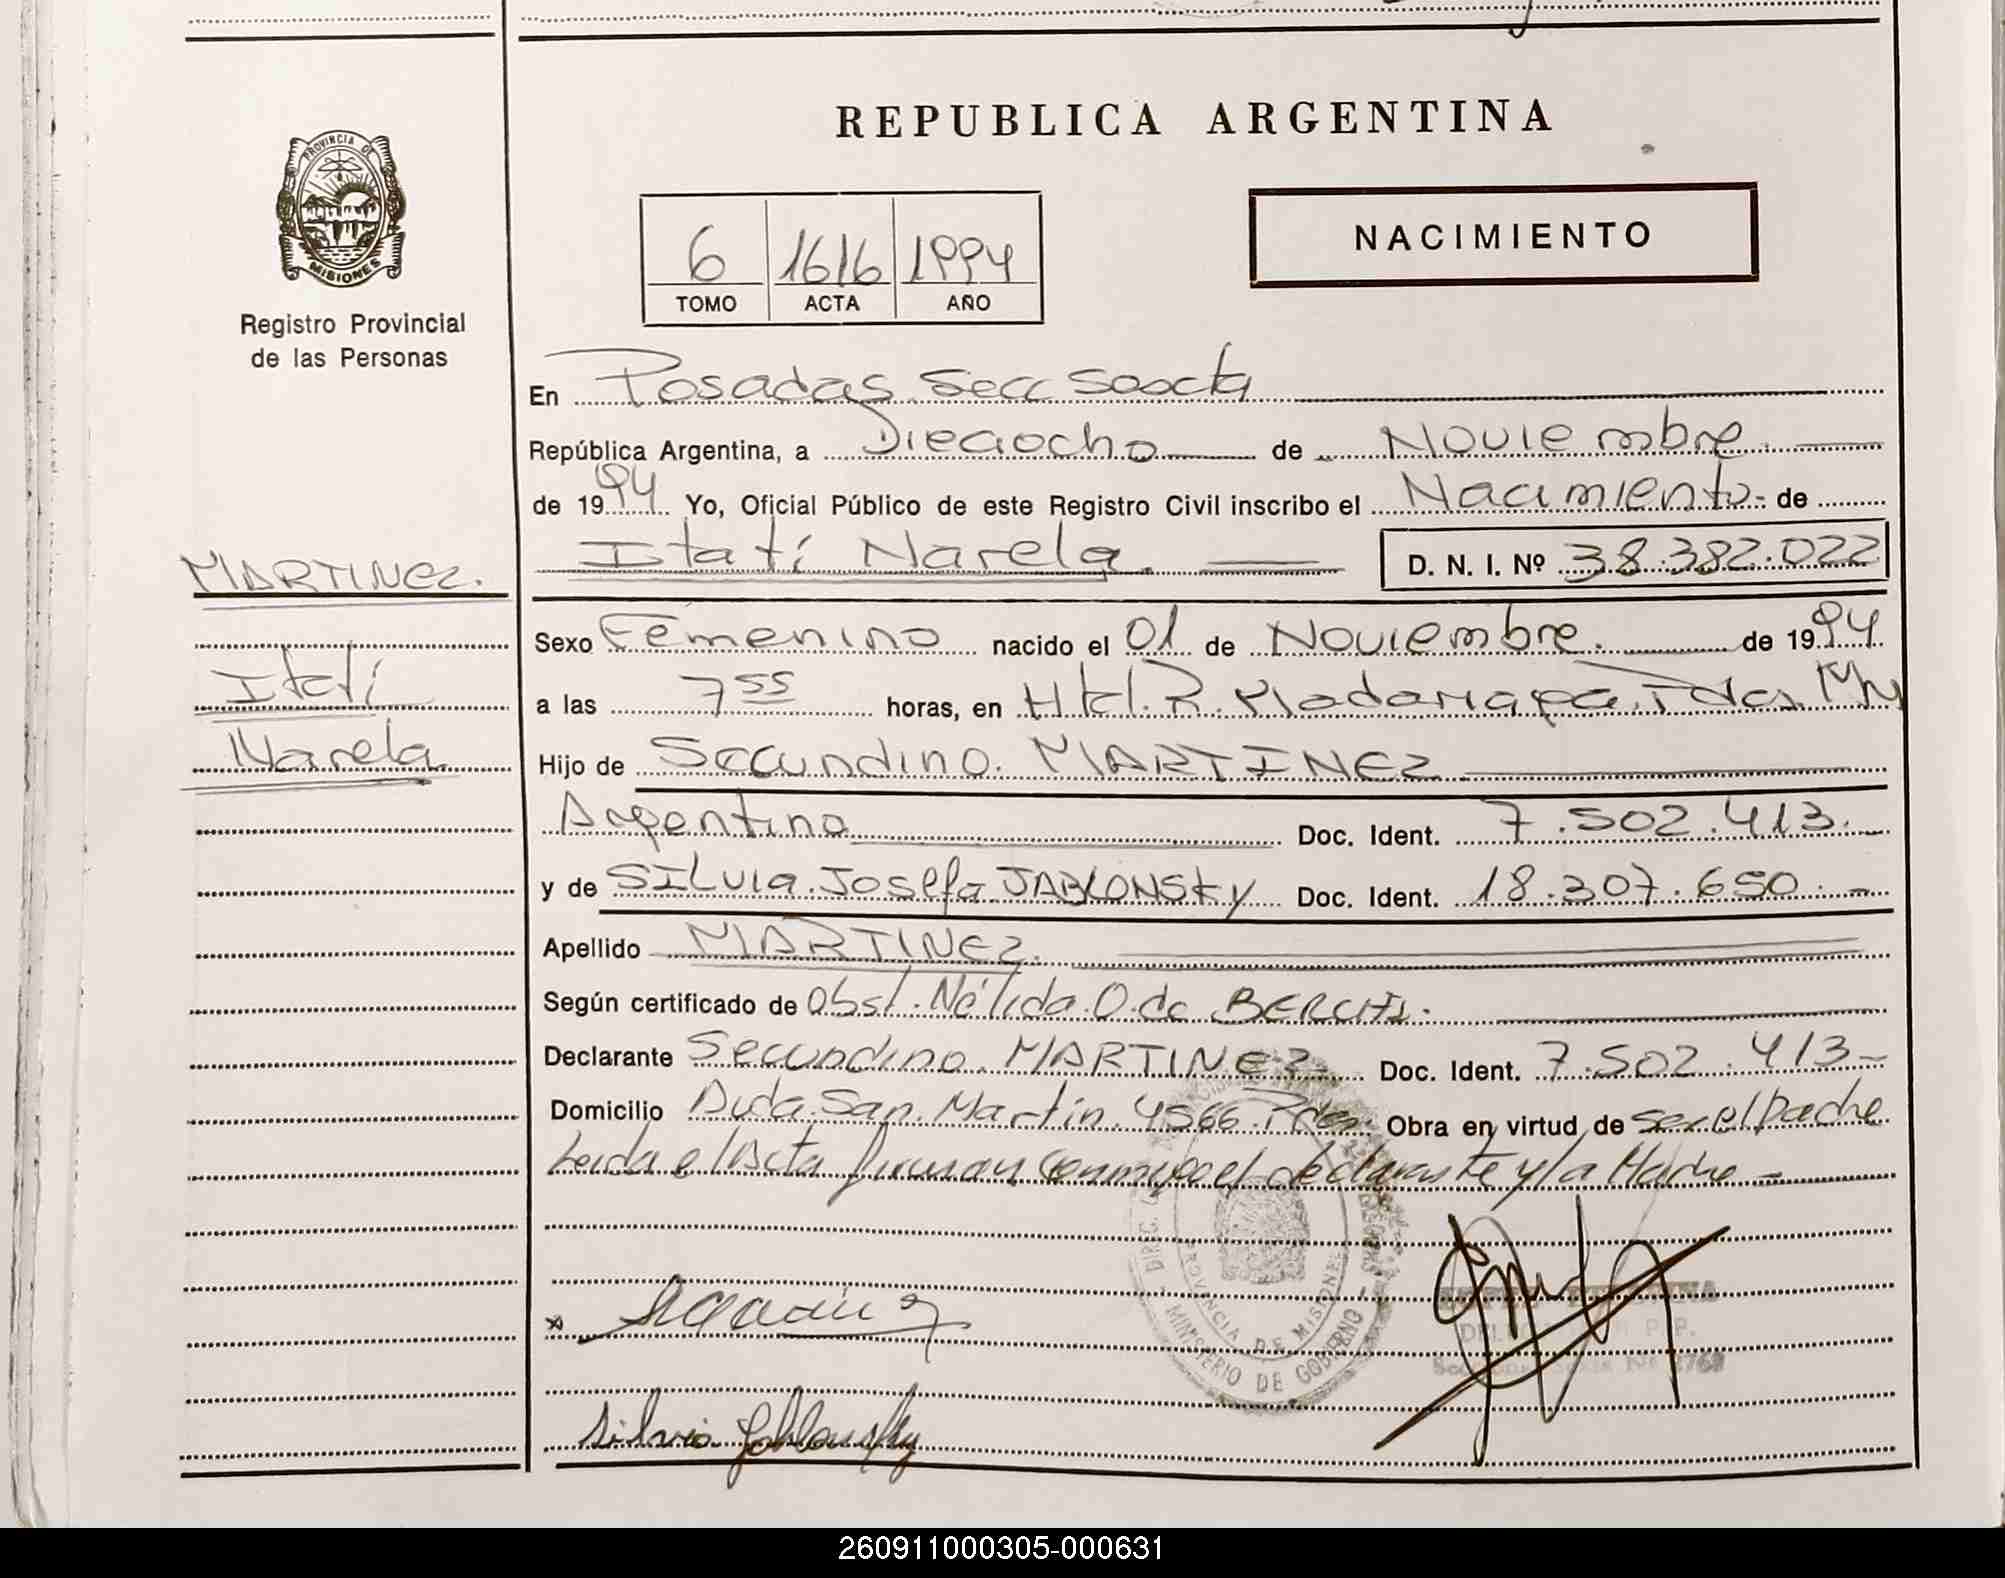 REPUBLICA ARGENTINA
PROVINCIA DE
MISIONES
Registro Provincial
de las Personas
6 1616 1994
TOMO ACTA AÑO
NACIMIENTO
En Posadas Secc Sexcta
República Argentina, a Dieciocho de Noviembre
de 1994 Yo, Oficial Público de este Registro Civil inscribo el Nacimiento de
Itatí Narela. D. N. I. Nº 38.382.022
MARTINEZ.
Itatí
Narela
Sexo Femenino nacido el 01 de Noviembre. de 1994
a las 7 55 horas, en Htal. R. Madariaga. Pdas. Mns
Hijo de Secundino. MARTINEZ
Argentino Doc. Ident. 7.502.413.
y de SILvia. Josefa. JABLONSky Doc. Ident. 18.307.650.-
Apellido MARTINEZ.
Según certificado de Obst. Nélida. O. de
Declarante Secundino. MARTINEZ Doc. Ident. 7.502.413-
Domicilio Avda. San. Martin. 4566. Pdas. Obra en virtud de ser el Padre
Leida el Acta firman conmigo el declarante y la Madre -
DIREC.
PROVINCIA DE MISIONES
MINISTERIO DE GOBIERNO
Silvia Jablonsky
260911000305-000631